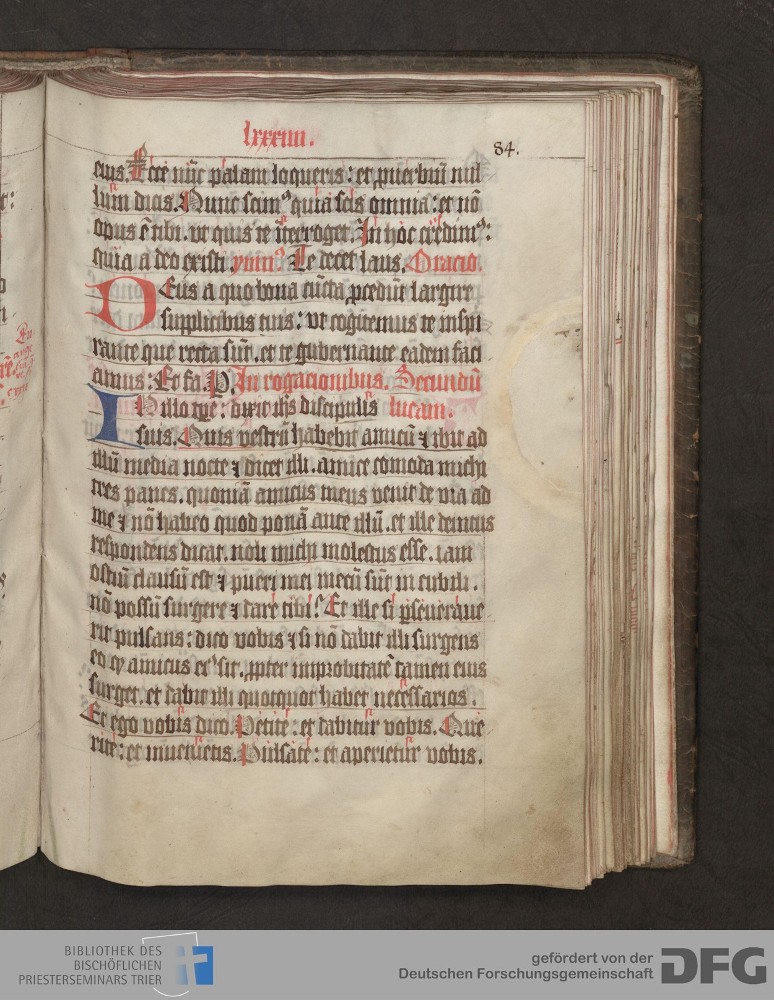 lxxxiiii.
84.
eius. Ecce nūc palam loqueris: et ꝓuerbiū nul
lum dicis. Nunc scimꝰ quia scis omnia: et nō
opus ē tibi. vt quis te īterroget. In hoc credimꝰ:
quia a deo existi. ymnꝰ. Te decet laus. Oracio.
DEus a quo bona cūcta ꝓcedūt largire
supplicibus tuis: vt cogitemus te inspi
rante que recta sūt. et te gubernante eadem faci
amus: Et fa. P. In rogacionibus. Secundū
IN illo tꝑe: dixit ihs discipulis lucam.
suis. Quis vestrū habebit amicū ⁊ ibit ad
illū media nocte ⁊ dicet illi. amice comoda michi
tres panes. quoniā amicus meus venit de via ad
me ⁊ nō habeo quod ponā ante illū. et ille deintus
respondens dicat. noli michi molestus esse. iam
ostiū clausū est ⁊ pueri mei mecū sūt in cubili.
nō possū surgere ⁊ dare tibi? Et ille si ꝑseuerāue
rit pulsans: dico vobis ⁊ si nō dabit illi surgens
eo ꝙ amicus eiꝰ sit. ꝓpter improbitatē tamen eius
surget. et dabit illi quotquot habet necessarios.
Et ego vobis dico. Petite: et dabitur vobis. Que
rite: et inuenietis. Pulsate: et aperietur vobis.
BIBLIOTHEK DES
BISCHÖFLICHEN
PRIESTERSEMINARS TRIER
gefördert von der
Deutschen Forschungsgemeinschaft
DFG